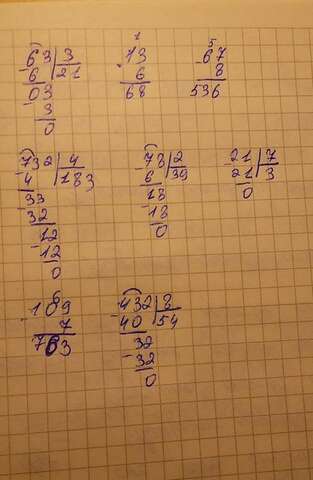 63 3
-6 21
03
-3
0
1
13
· 6
68
5
67
· 8
536
732 4
-4 183
33
-32
12
-12
0
78 2
-6 39
18
-18
0
21 7
-21 3
0
6
109
· 7
763
432 8
-40 54
32
-32
0